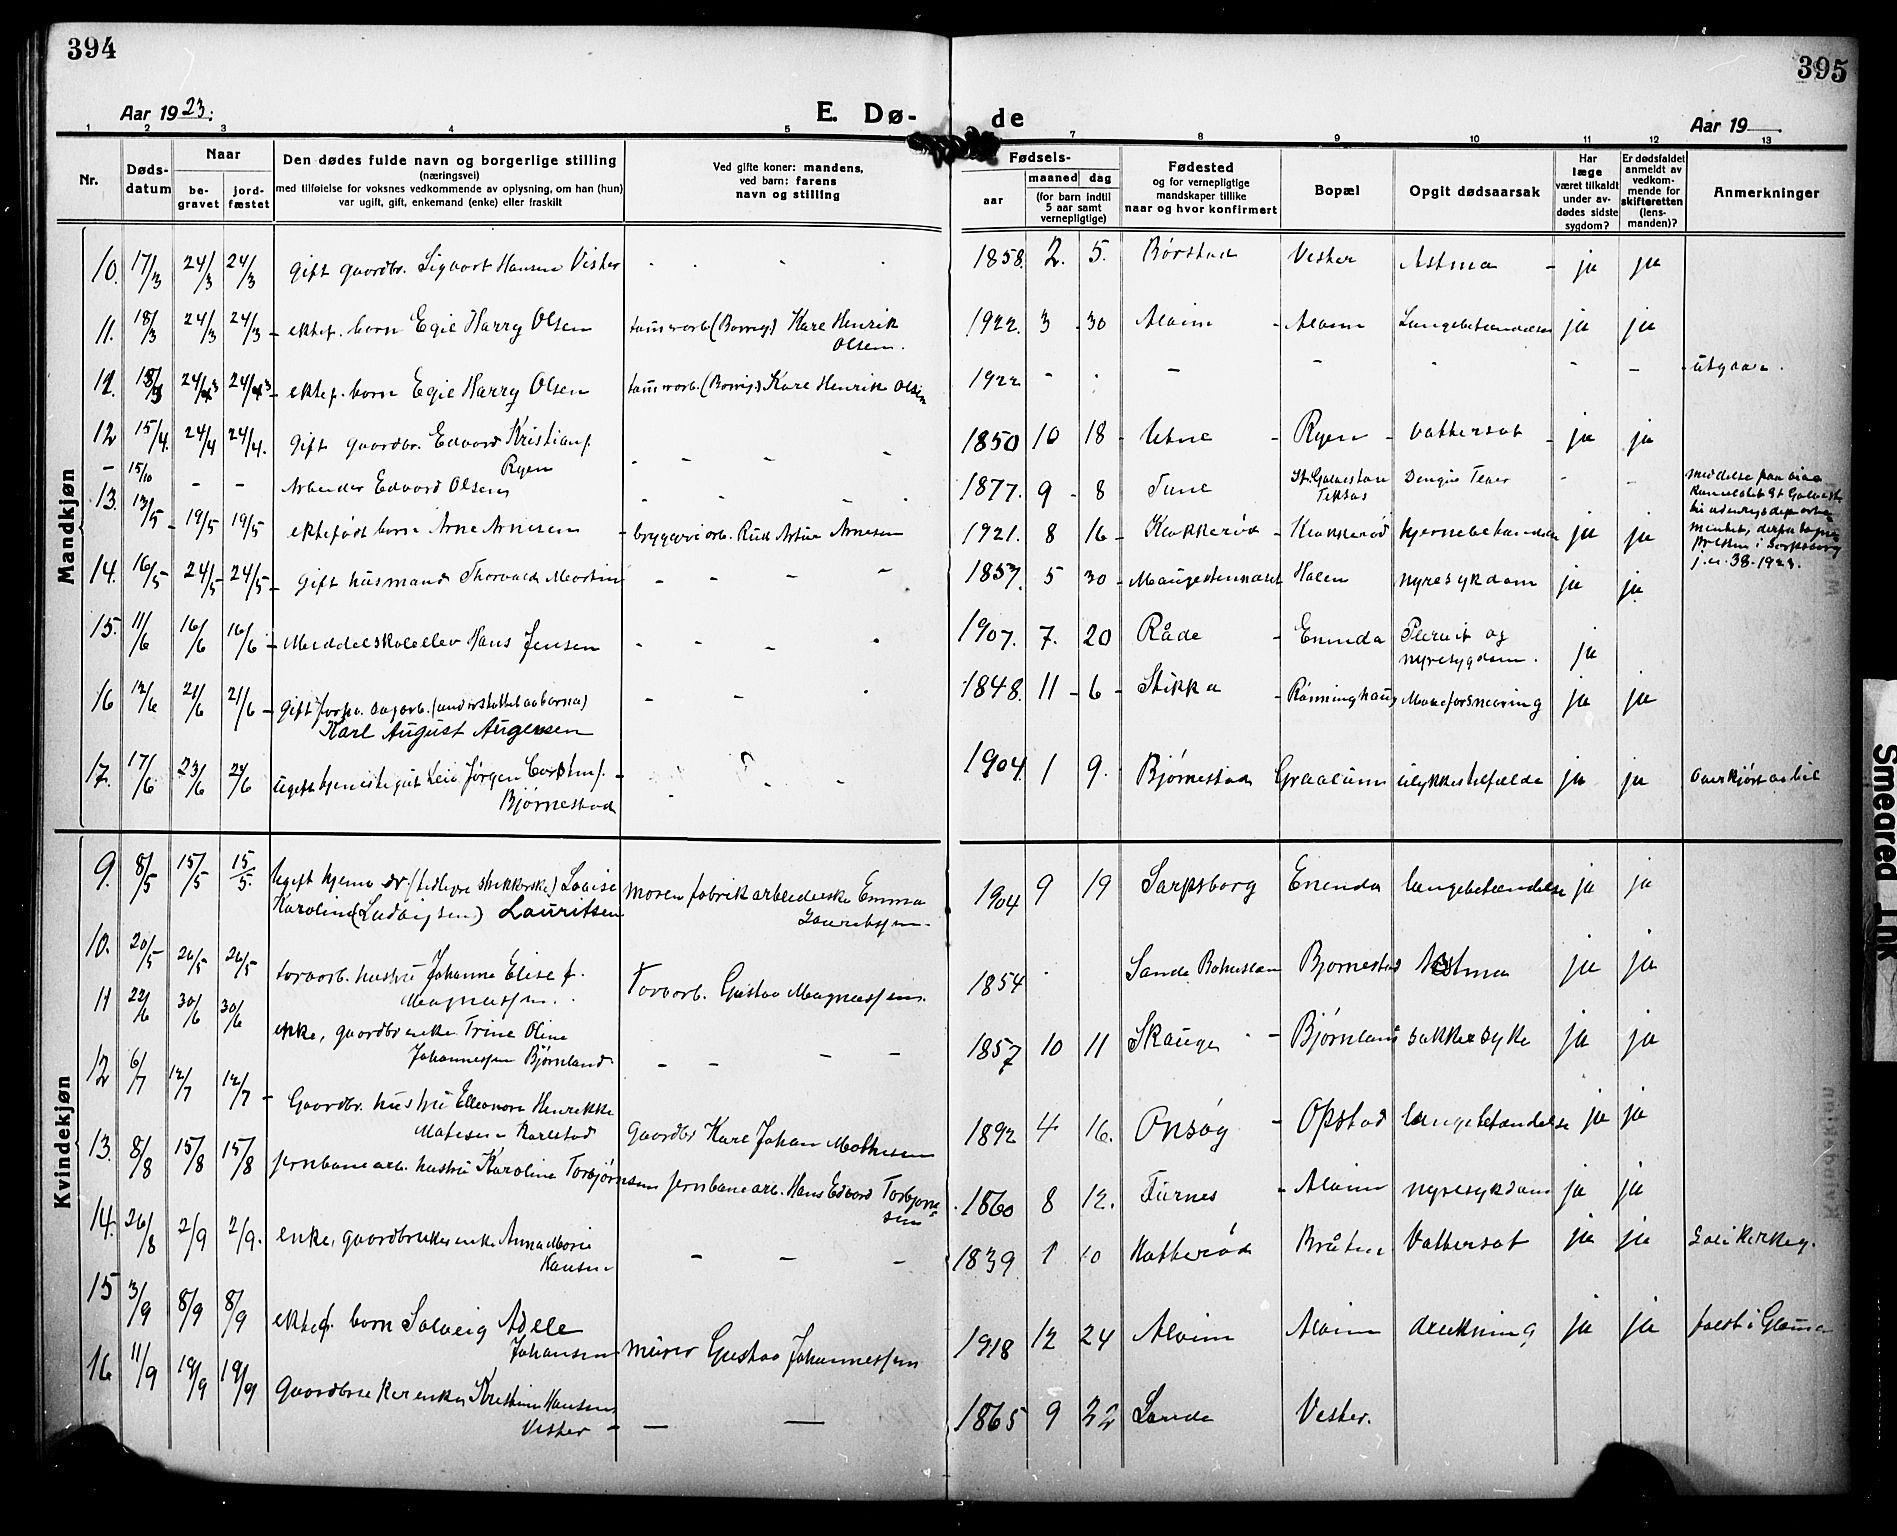 394
395
Aar 1923.
E. Dø-
de
Aar 19
1 2 3 4 5 7 8 9 10 11 12 13
Nr.
Døds-
datum
Naar
be-
gravet
jord-
fæstet
Den dødes fulde navn og borgerlige stilling
(næringsvei)
med tilføielse for voksnes vedkommende av oplysning, om han (hun)
var ugift, gift, enkemand (enke) eller fraskilt
Ved gifte koner: mandens,
ved barn: farens
navn og stilling
Fødsels-
aar
maaned
dag
(for barn indtil
5 aar samt
vernepligtige)
Fødested
og for vernepligtige
mandskaper tillike
naar og hvor konfirmert
Bopæl
Opgit dødsaarsak
Har
læge
været tilkaldt
under av-
dødes sidste
sygdom?
Er dødsfaldet
anmeldt av
vedkom-
mende for
skifteretten
(lens-
manden)?
Anmerkninger
Mandkjøn
10. 17/3 24/3 24/3 gift gaardbr. Sigvart Hansen Vister 1858. 2. 5. Børstad Vister Astma - ja ja
11. 18/3 24/3 24/3 - ektef. barn Egil Harry Olsen (Borreg.) Kare Henrik
Olsen.
1922. 3 - 30 Alvim - Alvim Lungebetændelse ja ja
12. 24/3 ektef. barn Egil Harry Olsen (Borreg.) Kare Henrik Olsen 1922 - - - - - - - utgaar.
12 15/4. 24/4 24/4. gift gaardbr. Edvard Kristianf.
Ryen
1850 10 18 - Utne - Ryen - Vattersot - ja ja
- 15/10 - - Arbeider Edvard Olsen 1877. 9 - 8 Tune St. Galvestone
Teksas
13. 13/5 - 19/5 19/5 ektefødt barn Arne Arnesen - bryggeriarb. Artur Arnesen 1921. 8 16 - Klokkerød - Klokkerød hjernebetændelse ja ja
14. 16/5 24/5 - 24/5 - gift husmand Thorvald Martin 1857. 5 30 - Haugestenneset Holen nyresykdom ja ja
15. 11/6 16/6 16/6 - Middelskoleelev Hans Jensen 1907. 7. 20 Råde - Enenda Plevrit og
nyresygdom. ja
16 12/6 21/6 21/6 - gift
Karl August Augensen
1848. 11 - 6 - Stikka - Rønninghaug ja ja
17. 17/6 23/6 24/6 ugift tjenestegut Leif Jørgen
Bjørnestad
1904 1 9. Bjørnestad Graalum ulykkestilfælde ja ja overkjørt av bil
j.n. 38. 1923.
Kvindekjøn
9. 8/5 15/5 15/5. Ugift hjemmev. (tidligere strikkerske) Louise
Karoline (Ludvigsen) Lauritsen
Moren fabrikarbeiderske Emma
Lauritssen.
1904 9 19 Sarpsborg Enenda lungebetændelse ja ja
10. 20/5 26/5 26/5 torvarb. hustru Johanne Elise f.
Magnussen.
Torvarb. Gustav Magnussen. 1854 Bjørnestad Astma ja ja
11 22/6 30/6 30/6 enke, gaardbr. enke Trine Oline
Johannessen Bjørnland
1857 10 11 Skauge - Bjørnland sukkersyke ja ja
12 6/7 12/7 12/7 - Gaardbr. hustru Elleonora Henrikke
Matisen Karlstad
Gaardbr Karl Johan Mathisen
1892 4 16. Onsøy - Opstad lungebetændelse ja ja
13. 8/8 15/8 15/8 jernbanearb. hustru Karoline Torbjørnsen jernbanearb. Hans Edvard Torbjørn-
sen
1860 8 12. Furnes - Alvim nyresykdom ja ja
14. 26/8 2/9 2/9. enke, gaardbrukerenke Anna Marie
Hansen
1839 1 10 Hatterød Bråten Vattersot ja ja
15 3/9 8/9 8/9 ektef. barn Solveig Adele
Johansen
murer Gustav Johannessen
1918 12 24 Alvim Alvim drukning ja ja faldt i Glomma
16 11/9 19/9 19/9 Gaardbrukerenke Kristine Hansen
Vister -
1865 9 22 Lande Vister.
Smeared Ink